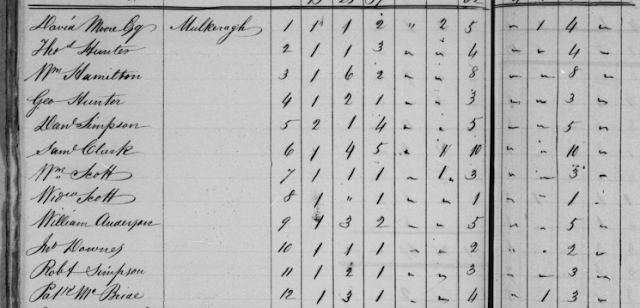 David Moore Esq Mulkeragh 1 1 1 2 " 2 5 " 1 4 "
Thos Hunter 2 1 1 3 " " 4 " " 4 "
Wm Hamilton 3 1 6 2 " " 8 " " 8 "
Geo Hunter 4 1 2 1 " " 3 " " 3 "
Danl Simpson 5 2 1 4 " " 5 " " 5 "
Saml Clark 6 1 4 5 " 1 10 " " 10 "
Wm Scott 7 1 1 1 " 1 3 " " 3 "
Widow Scott 8 1 " 1 " " 1 " " 1 "
William Anderson 9 1 3 2 " " 5 " " 5 "
Downes 10 1 1 1 " " 2 " " 2 "
Robt Simpson 11 1 2 1 " " 3 " " 3 "
Patk Mc Bride 12 1 3 1 " " 4 " 1 3 "